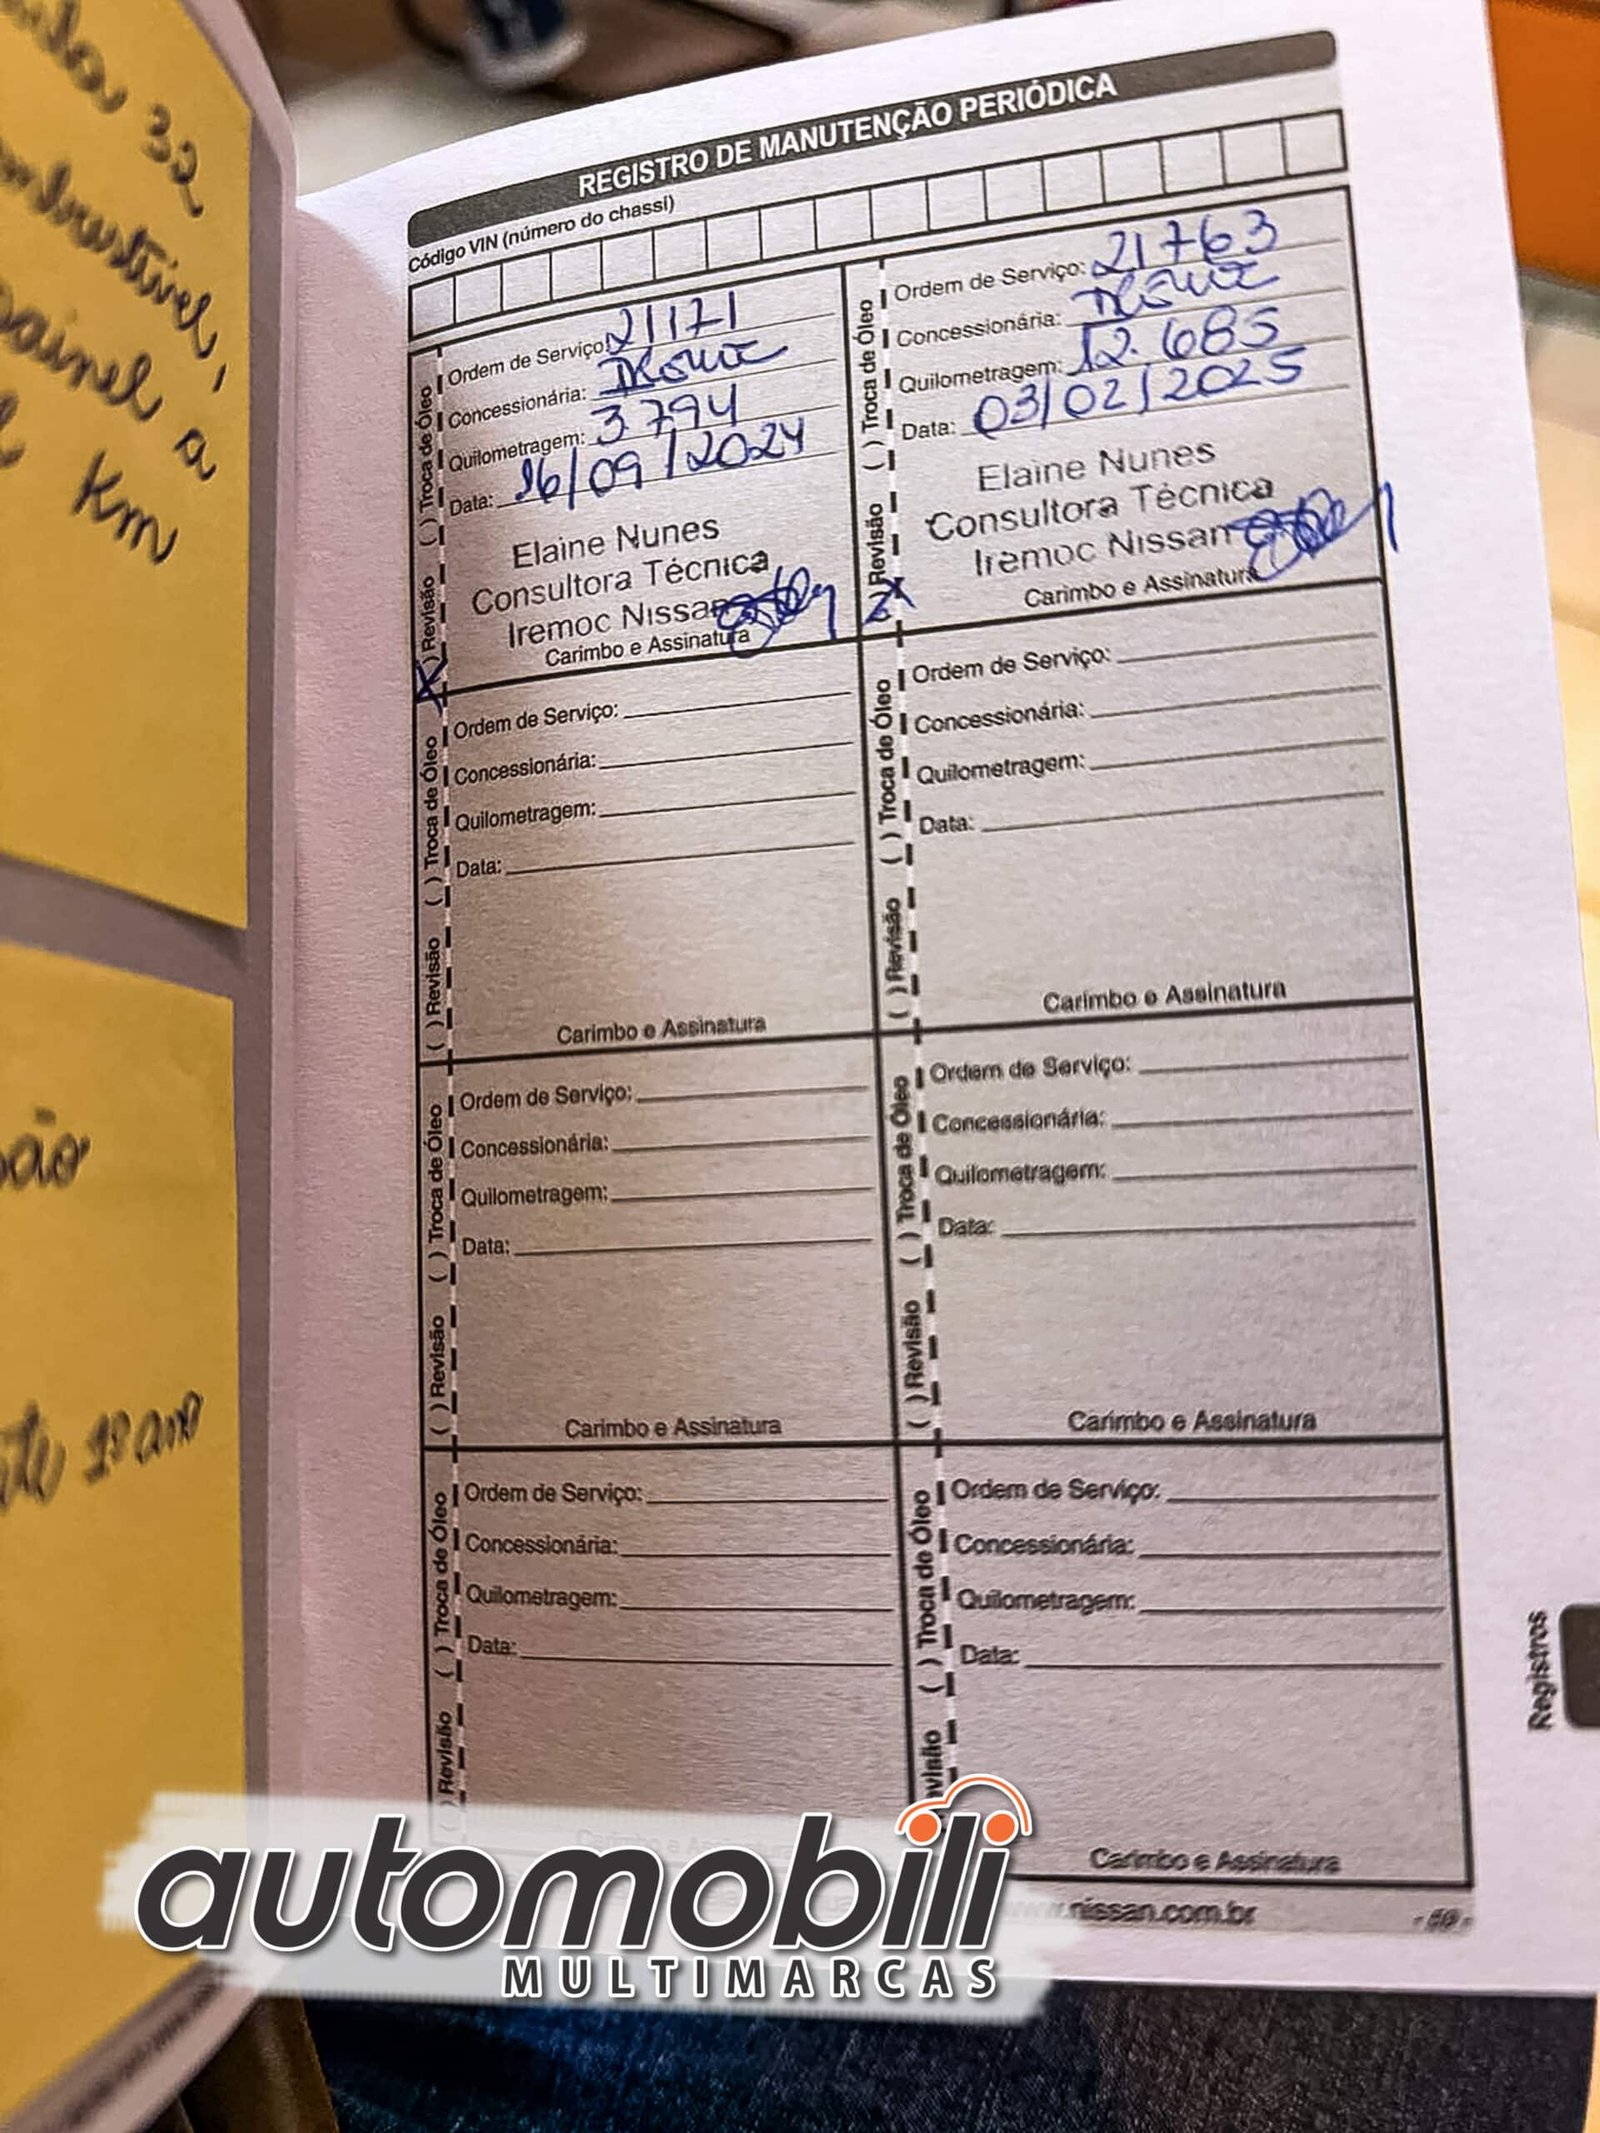 32
Km
1º ano
REGISTRO DE MANUTENÇÃO PERIÓDICA
Código VIN (número do chassi)
( ) Revisão ( ) Troca de Óleo
Ordem de Serviço: 21171
Concessionária:
Quilometragem: 3 794
Data: 16/09/2024
Elaine Nunes
Consultora Técnica
Iremoc Nissan
Carimbo e Assinatura
( ) Revisão ( ) Troca de Óleo
Ordem de Serviço: 21763
Concessionária:
Quilometragem: 12.685
Data: 03/02/2025
Elaine Nunes
Consultora Técnica
Iremoc Nissan
Carimbo e Assinatura
( ) Revisão ( ) Troca de Óleo
Ordem de Serviço:
Concessionária:
Quilometragem:
Data:
Carimbo e Assinatura
( ) Revisão ( ) Troca de Óleo
Ordem de Serviço:
Concessionária:
Quilometragem:
Data:
Carimbo e Assinatura
( ) Revisão ( ) Troca de Óleo
Ordem de Serviço:
Concessionária:
Quilometragem:
Data:
Carimbo e Assinatura
( ) Revisão ( ) Troca de Óleo
Ordem de Serviço:
Concessionária:
Quilometragem:
Data:
Carimbo e Assinatura
( ) Revisão ( ) Troca de Óleo
Ordem de Serviço:
Concessionária:
Quilometragem:
Data:
( ) Troca de Óleo
Ordem de Serviço:
Concessionária:
Quilometragem:
Data:
Carimbo e Assinatura
Registros
nissan.com.br
automobili
MULTIMARCAS